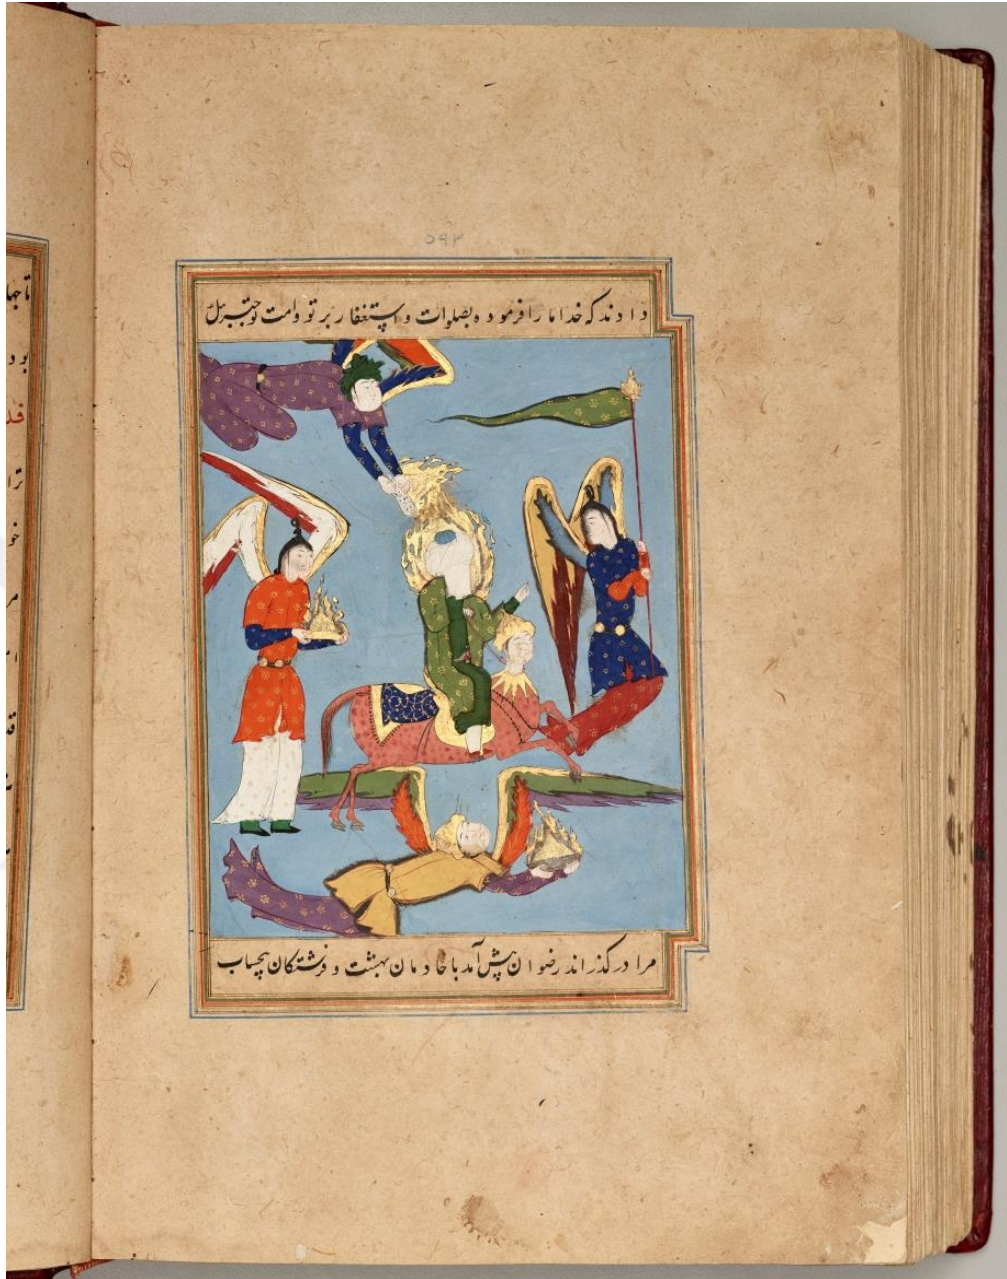 ۵۹۲
دادند که خدا ما را فرموده بصلوات و استغفار بر تو و امت تو جبرئیل
مرا درگذراند رضوان پیش آمد با خادمان بهشت و فرشتگان بیحساب